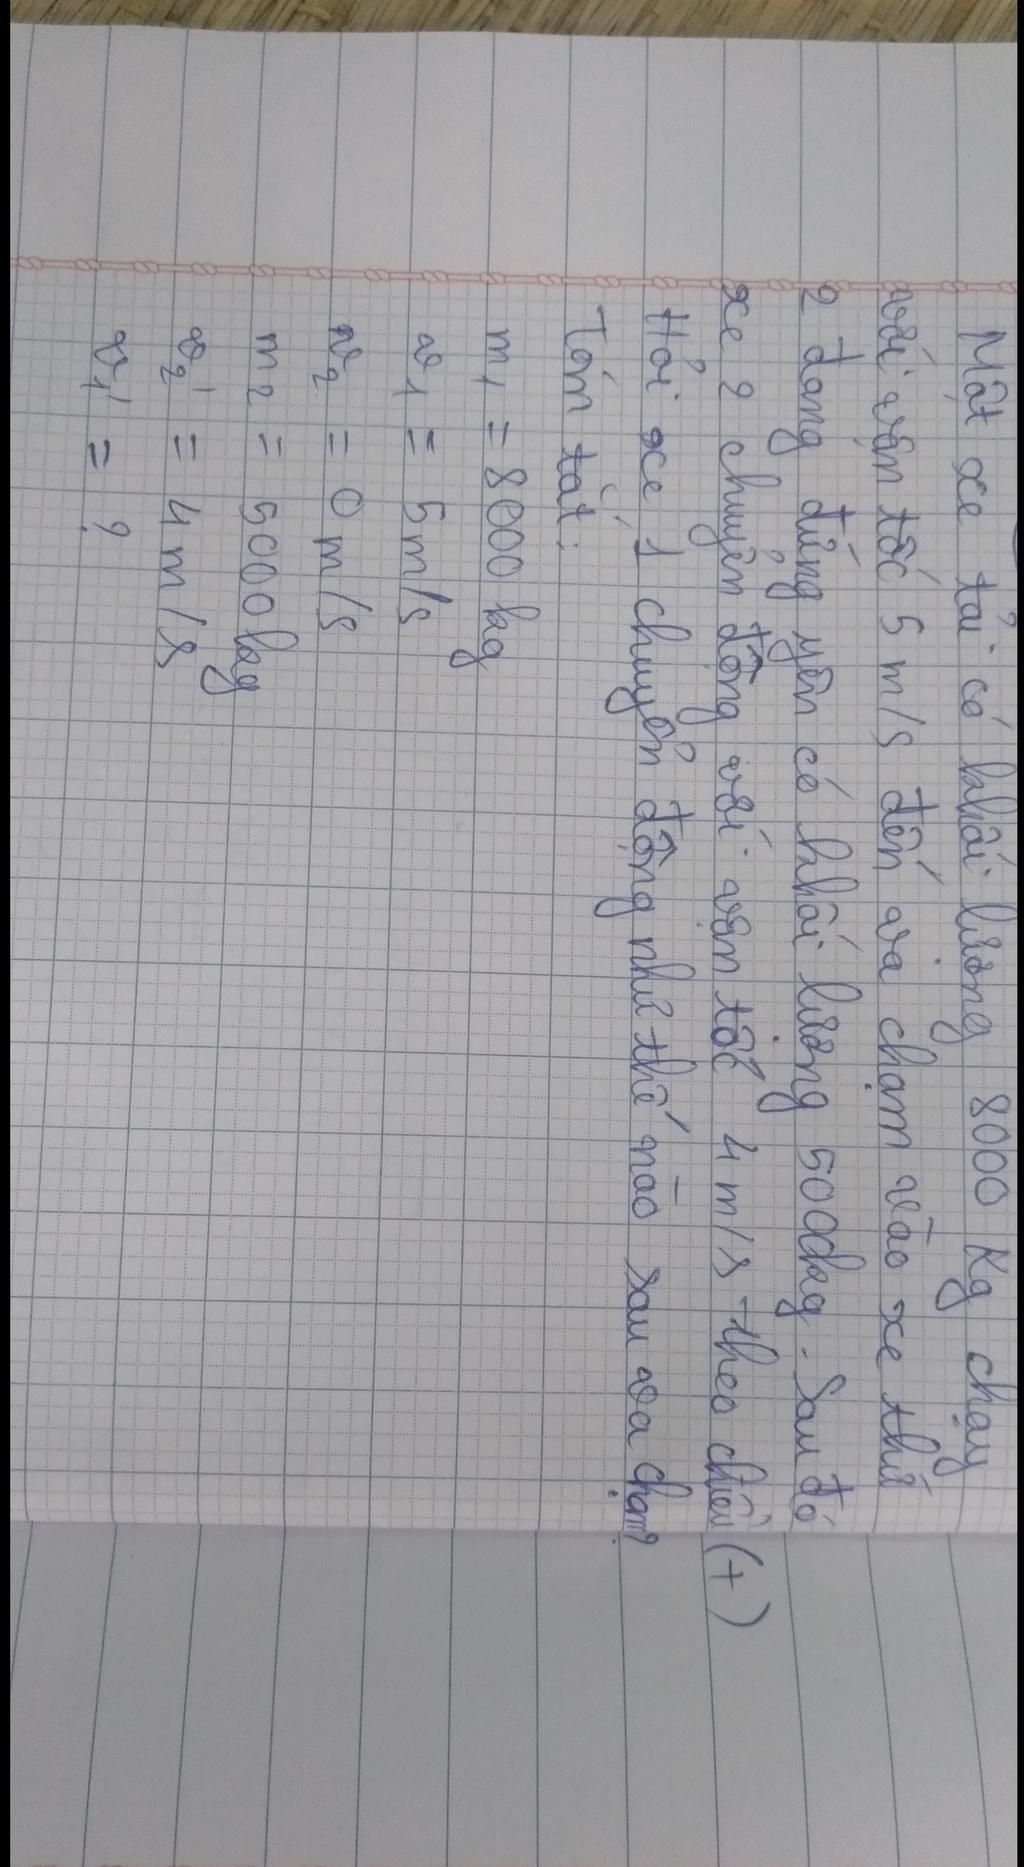 Một xe tải có khối lượng 8000 Kg chạy
với vận tốc 5 m/s đến va chạm vào xe thứ
2 đang đứng yên có khối lượng 5000kg. Sau đó
xe 2 chuyển động với vận tốc 4 m/s theo chiều (+)
Hỏi xe 1 chuyển động như thế nào sau va chạm?
Tóm tắt:
m₁ = 8000 kg
v₁ = 5m/s
v₂ = 0 m/s
m₂ = 5000 kg
v₂' = 4 m/s
v₁' = ?